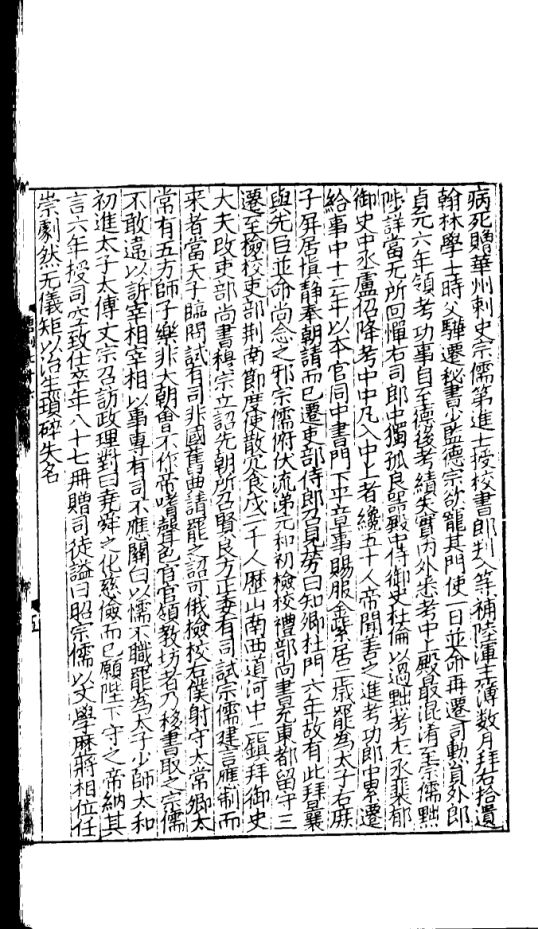 病死贈華州刺史宗儒第進士授校書郎判入等補陸渾主簿數月拜右拾遺
翰林學士時父驊遷秘書少監德宗欲寵其門使一日並命再遷司勳員外郎
貞元六年領考功事自至德後考績失實內外悉考中上殿最混淆至宗儒黜
陟詳當无所回憚右司郎中獨孤良器殿中侍御史杜倫以過黜考左丞裴郁
御史中丞盧佋降考中中凡入中上者纔五十人帝聞善之進考功郎中累遷
給事中十二年以本官同中書門下平章事賜服金紫居二歲罷為太子右庶
子屏居慎靜奉朝請而已遷吏部侍郎召見勞曰知卿杜門六年故有此拜曩
與先臣並命尚念之邪宗儒俯伏流涕元和初檢校禮部尚書充東都留守三
遷至檢校吏部荊南節度使散冗食戍二千人歷山南西道河中二鎮拜御史
大夫改吏部尚書穆宗立詔先朝所召賢良方正委有司試宗儒建言應制而
來者當天子臨問試有司非國舊典請罷之詔可俄檢校右僕射守太常卿太
常有五方師子樂非大朝會不作帝嗜聲色宦官領教坊者乃移書取之宗儒
不敢違以訴宰相宰相以事專有司不應關白以懦不職罷為太子少師太和
初進太子太傅文宗召訪政理對曰堯舜之化慈儉而已願陛下守之帝納其
言六年授司空致仕卒年八十七冊贈司徒謚曰昭宗儒以文學歷將相位任
崇劇然无儀矩以治生瑣碎失名